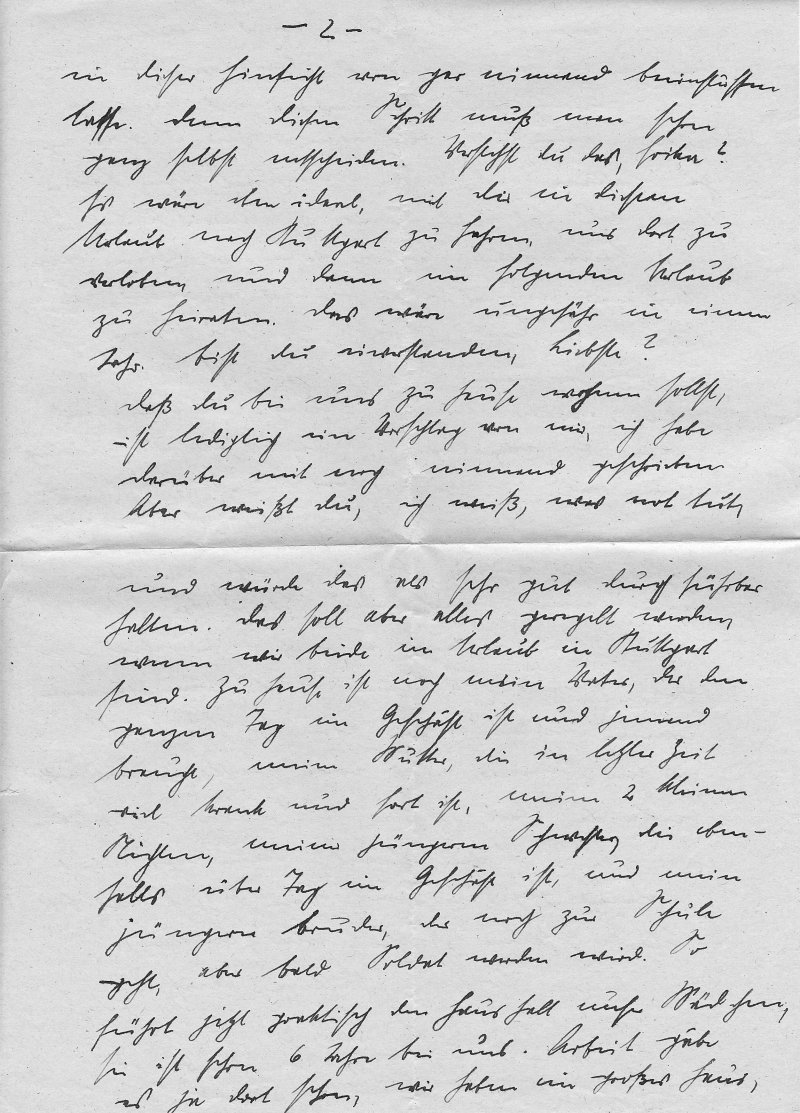 - 2 -
in dieser Hinsicht von gar niemand beeinflussen
lasse. Denn diesen Schritt muß man schon
ganz selbst entscheiden. Verstehst du das, Erika?
Es wäre eben ideal, mit dir in diesem
Urlaub nach Stuttgart zu fahren, uns dort zu
verloben, und dann im folgenden Urlaub
zu heiraten. Das wäre ungefähr in einem
Jahr. Bist du einverstanden, Liebste?
Daß du bei uns zu Hause wohnen sollst,
ist lediglich ein Vorschlag von mir, ich habe
darüber mit noch niemand geschrieben
Aber weißt du, ich weiß, was not tut,
und würde das als sehr gut durchführbar
halten. Das soll aber alles geregelt werden,
wenn wir beide im Urlaub in Stuttgart
sind. Zu Hause ist noch mein Vater, der den
ganzen Tag im Geschäft ist und jemand
braucht, meine Mutter, die in letzter Zeit
viel krank und fort ist, meine 2 kleinen
Nichten, meine jüngere Schwester, die eben-
falls über Tag im Geschäft ist, und mein
jüngerer Bruder, der noch zur Schule
geht, aber bald Soldat werden wird. So
führt jetzt praktisch den Haushalt unser Mädchen,
sie ist schon 6 Jahre bei uns. Arbeit gäbe
es ja dort schon, wir haben ein großes Haus,